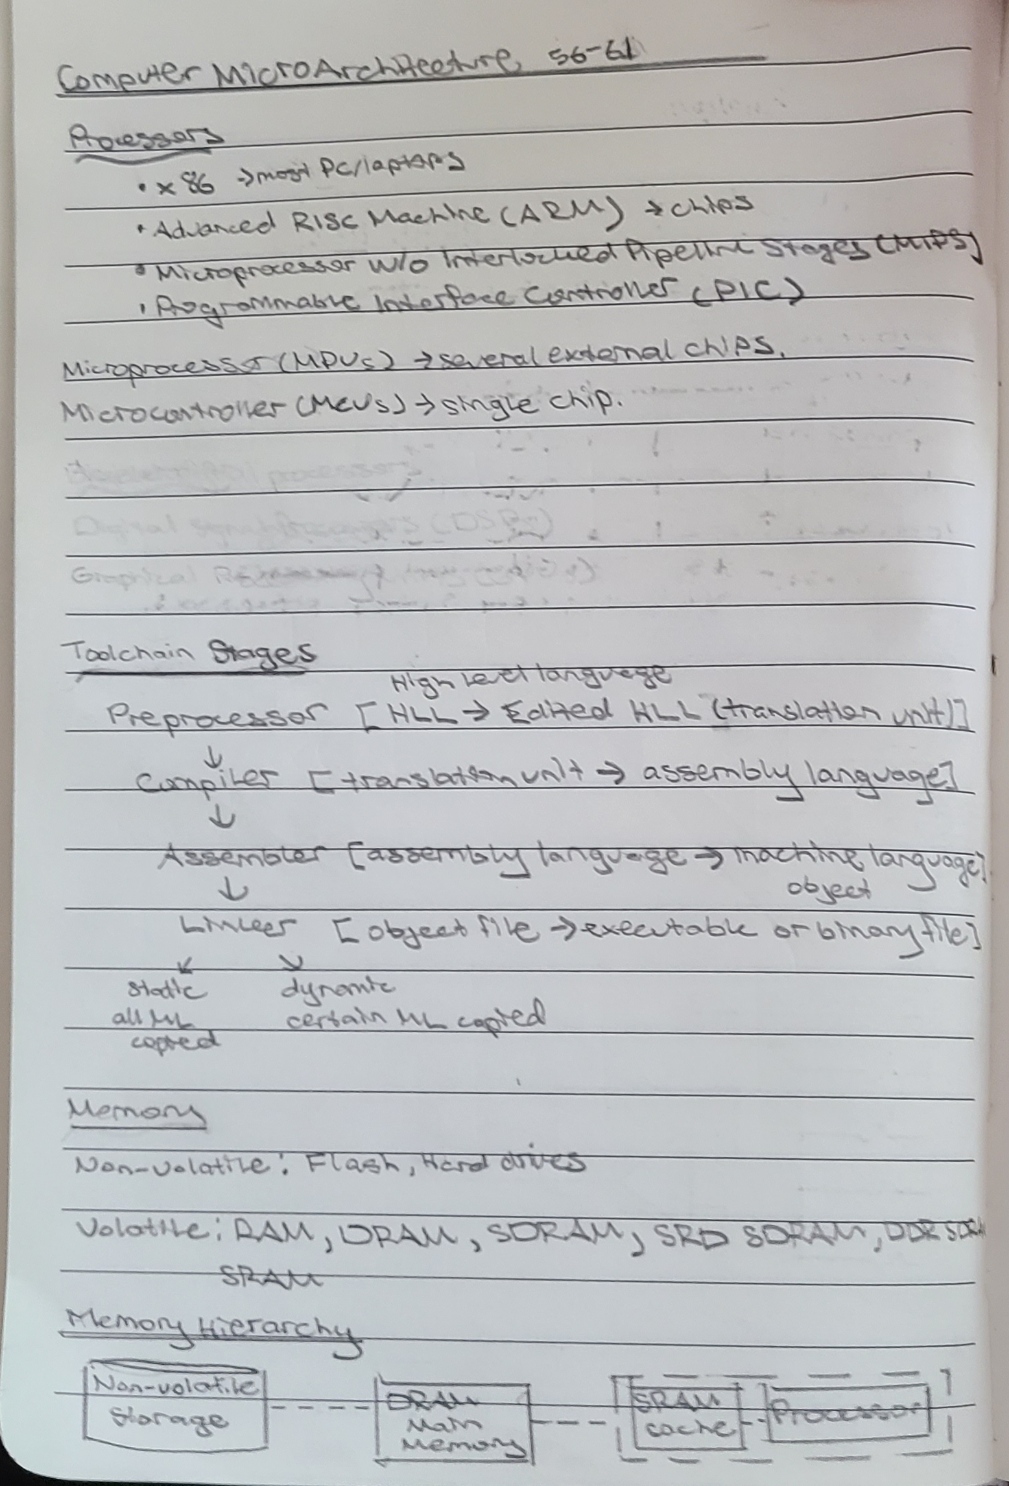 Computer MicroArchitecture 56-61
Processors
• x86 → most PC/laptops
• Advanced RISC Machine (ARM) → chips
• Microprocessor w/o Interlocked Pipeline Stages (MIPS)
• Programmable Interface Controller (PIC)
Microprocessor (MPUs) → several external chips.
Microcontroller (MCUs) → single chip.
Digital Signal (DSPs)
Graphical
Toolchain Stages
High Level language
Preprocessor [HLL → Edited HLL (translation unit)]
↓
Compiler [translation unit → assembly language]
↓
Assembler [assembly language → machine language]
↓ object
Linker [object file → executable or binary file]
↙ ↘
static dynamic
all ML certain ML copied
copied
Memory
Non-volatile: Flash, Hard drives
Volatile: RAM, DRAM, SDRAM, SRD SDRAM, DDR SDRAM
SRAM
Memory Hierarchy
Non-volatile DRAM SRAM Processor
Storage Main cache
Memory